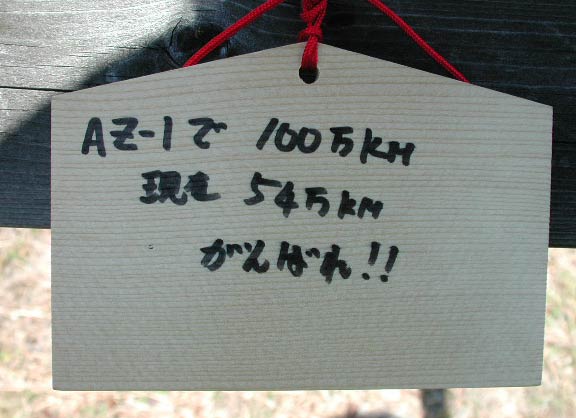 AZ-1で 100万KM
現在 54万KM
がんばれ!!